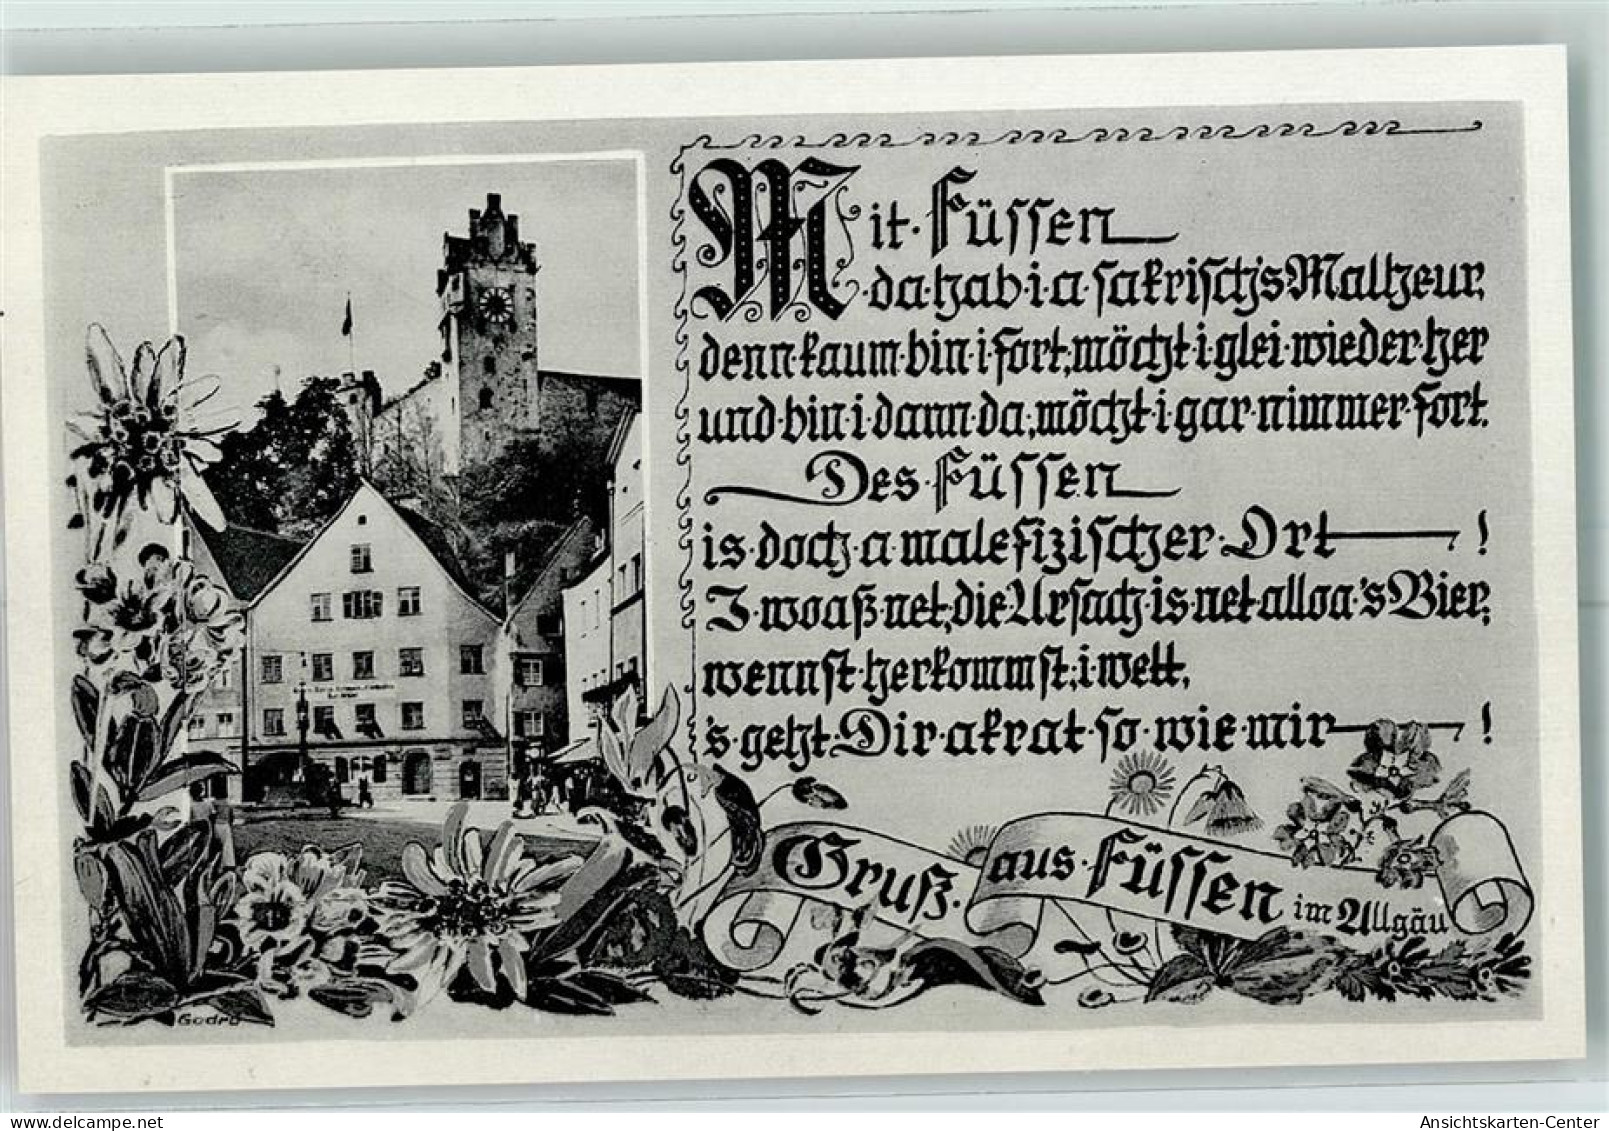 Mit Füssen
da hab i a sakrisch's Malheur,
denn kaum bin i fort, möcht i glei wieder her
und bin i dann da, möcht i gar nimmer fort.
Des Füssen
is doch a malefizischer Ort !
I woaß net, die Ursach is net alloa 's Bier,
wennst herkommst, i wett,
's geht Dir akrat so wie mir !
Gruß aus Füssen im Allgäu
Godro
delcampe.net
Ansichtskarten-Center